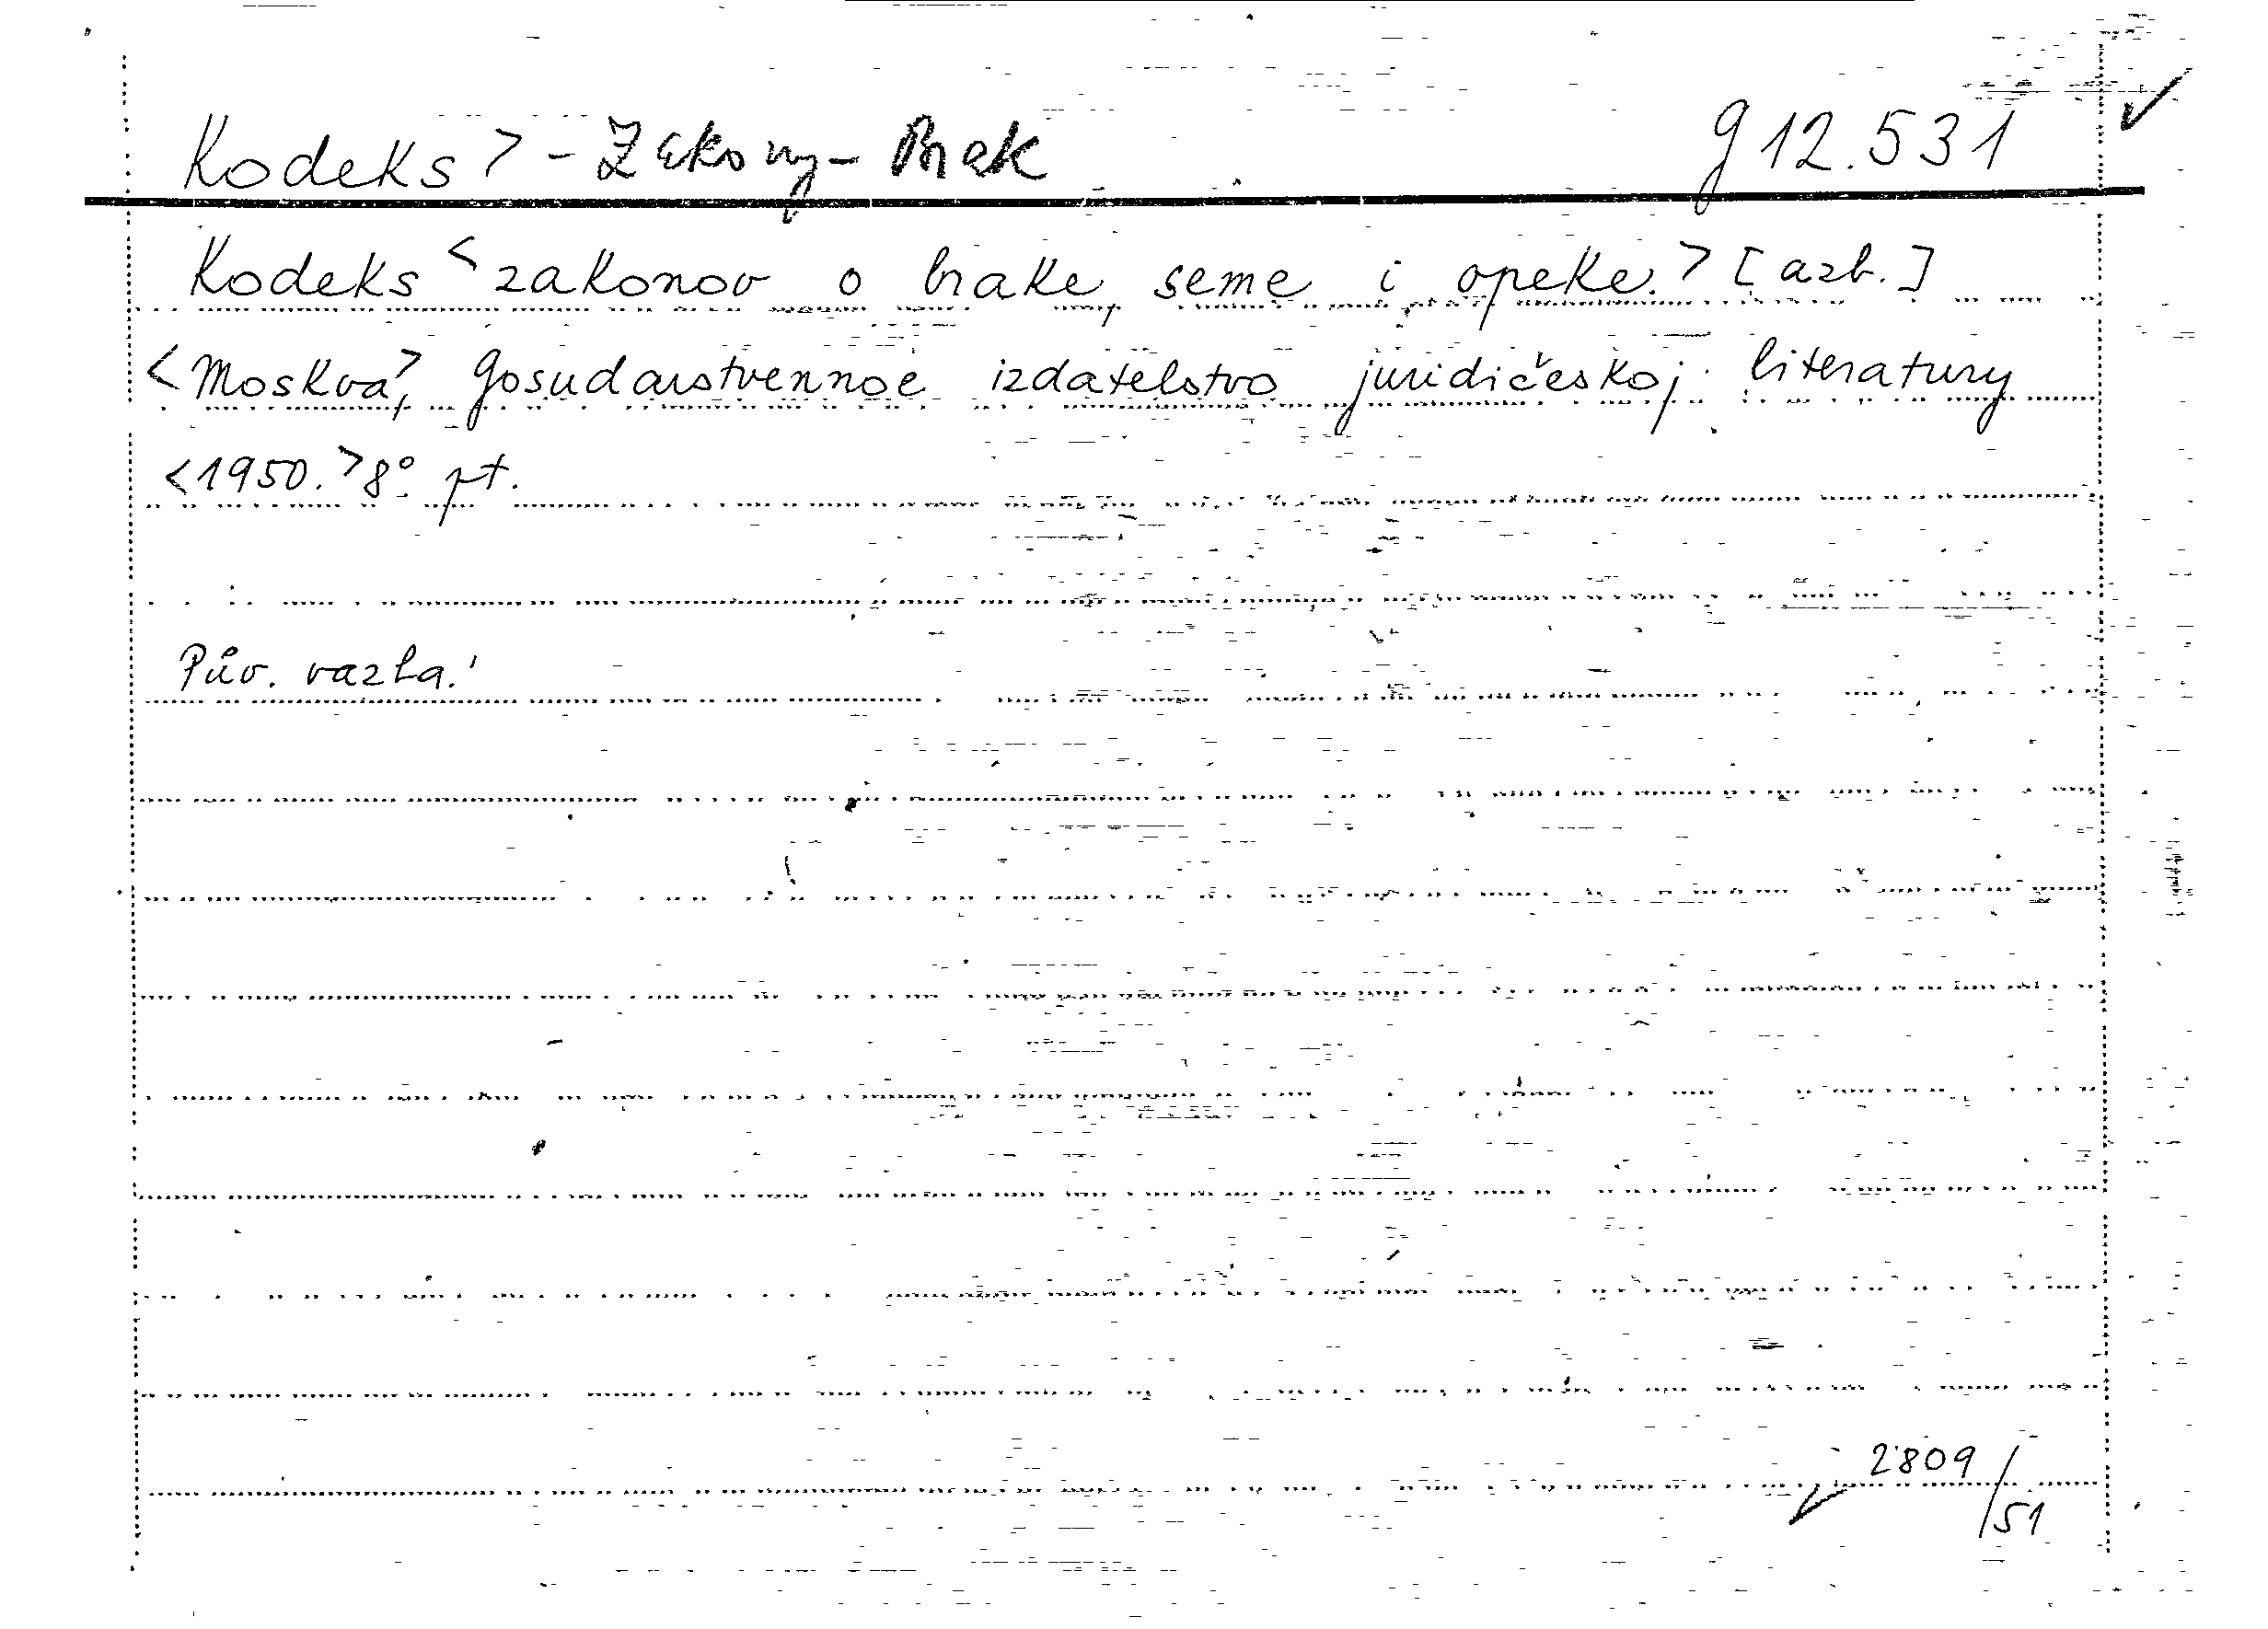 Kodeks > - Zákony - Brak g 12.531
Kodeks < zakonov o brake, seme i opeke. > [azb.]
< Moskva >, Gosudarstvennoe izdatelstvo juridičeskoj literatury
< 1950. > 8° pt.
Pův. vazba.
2809/51